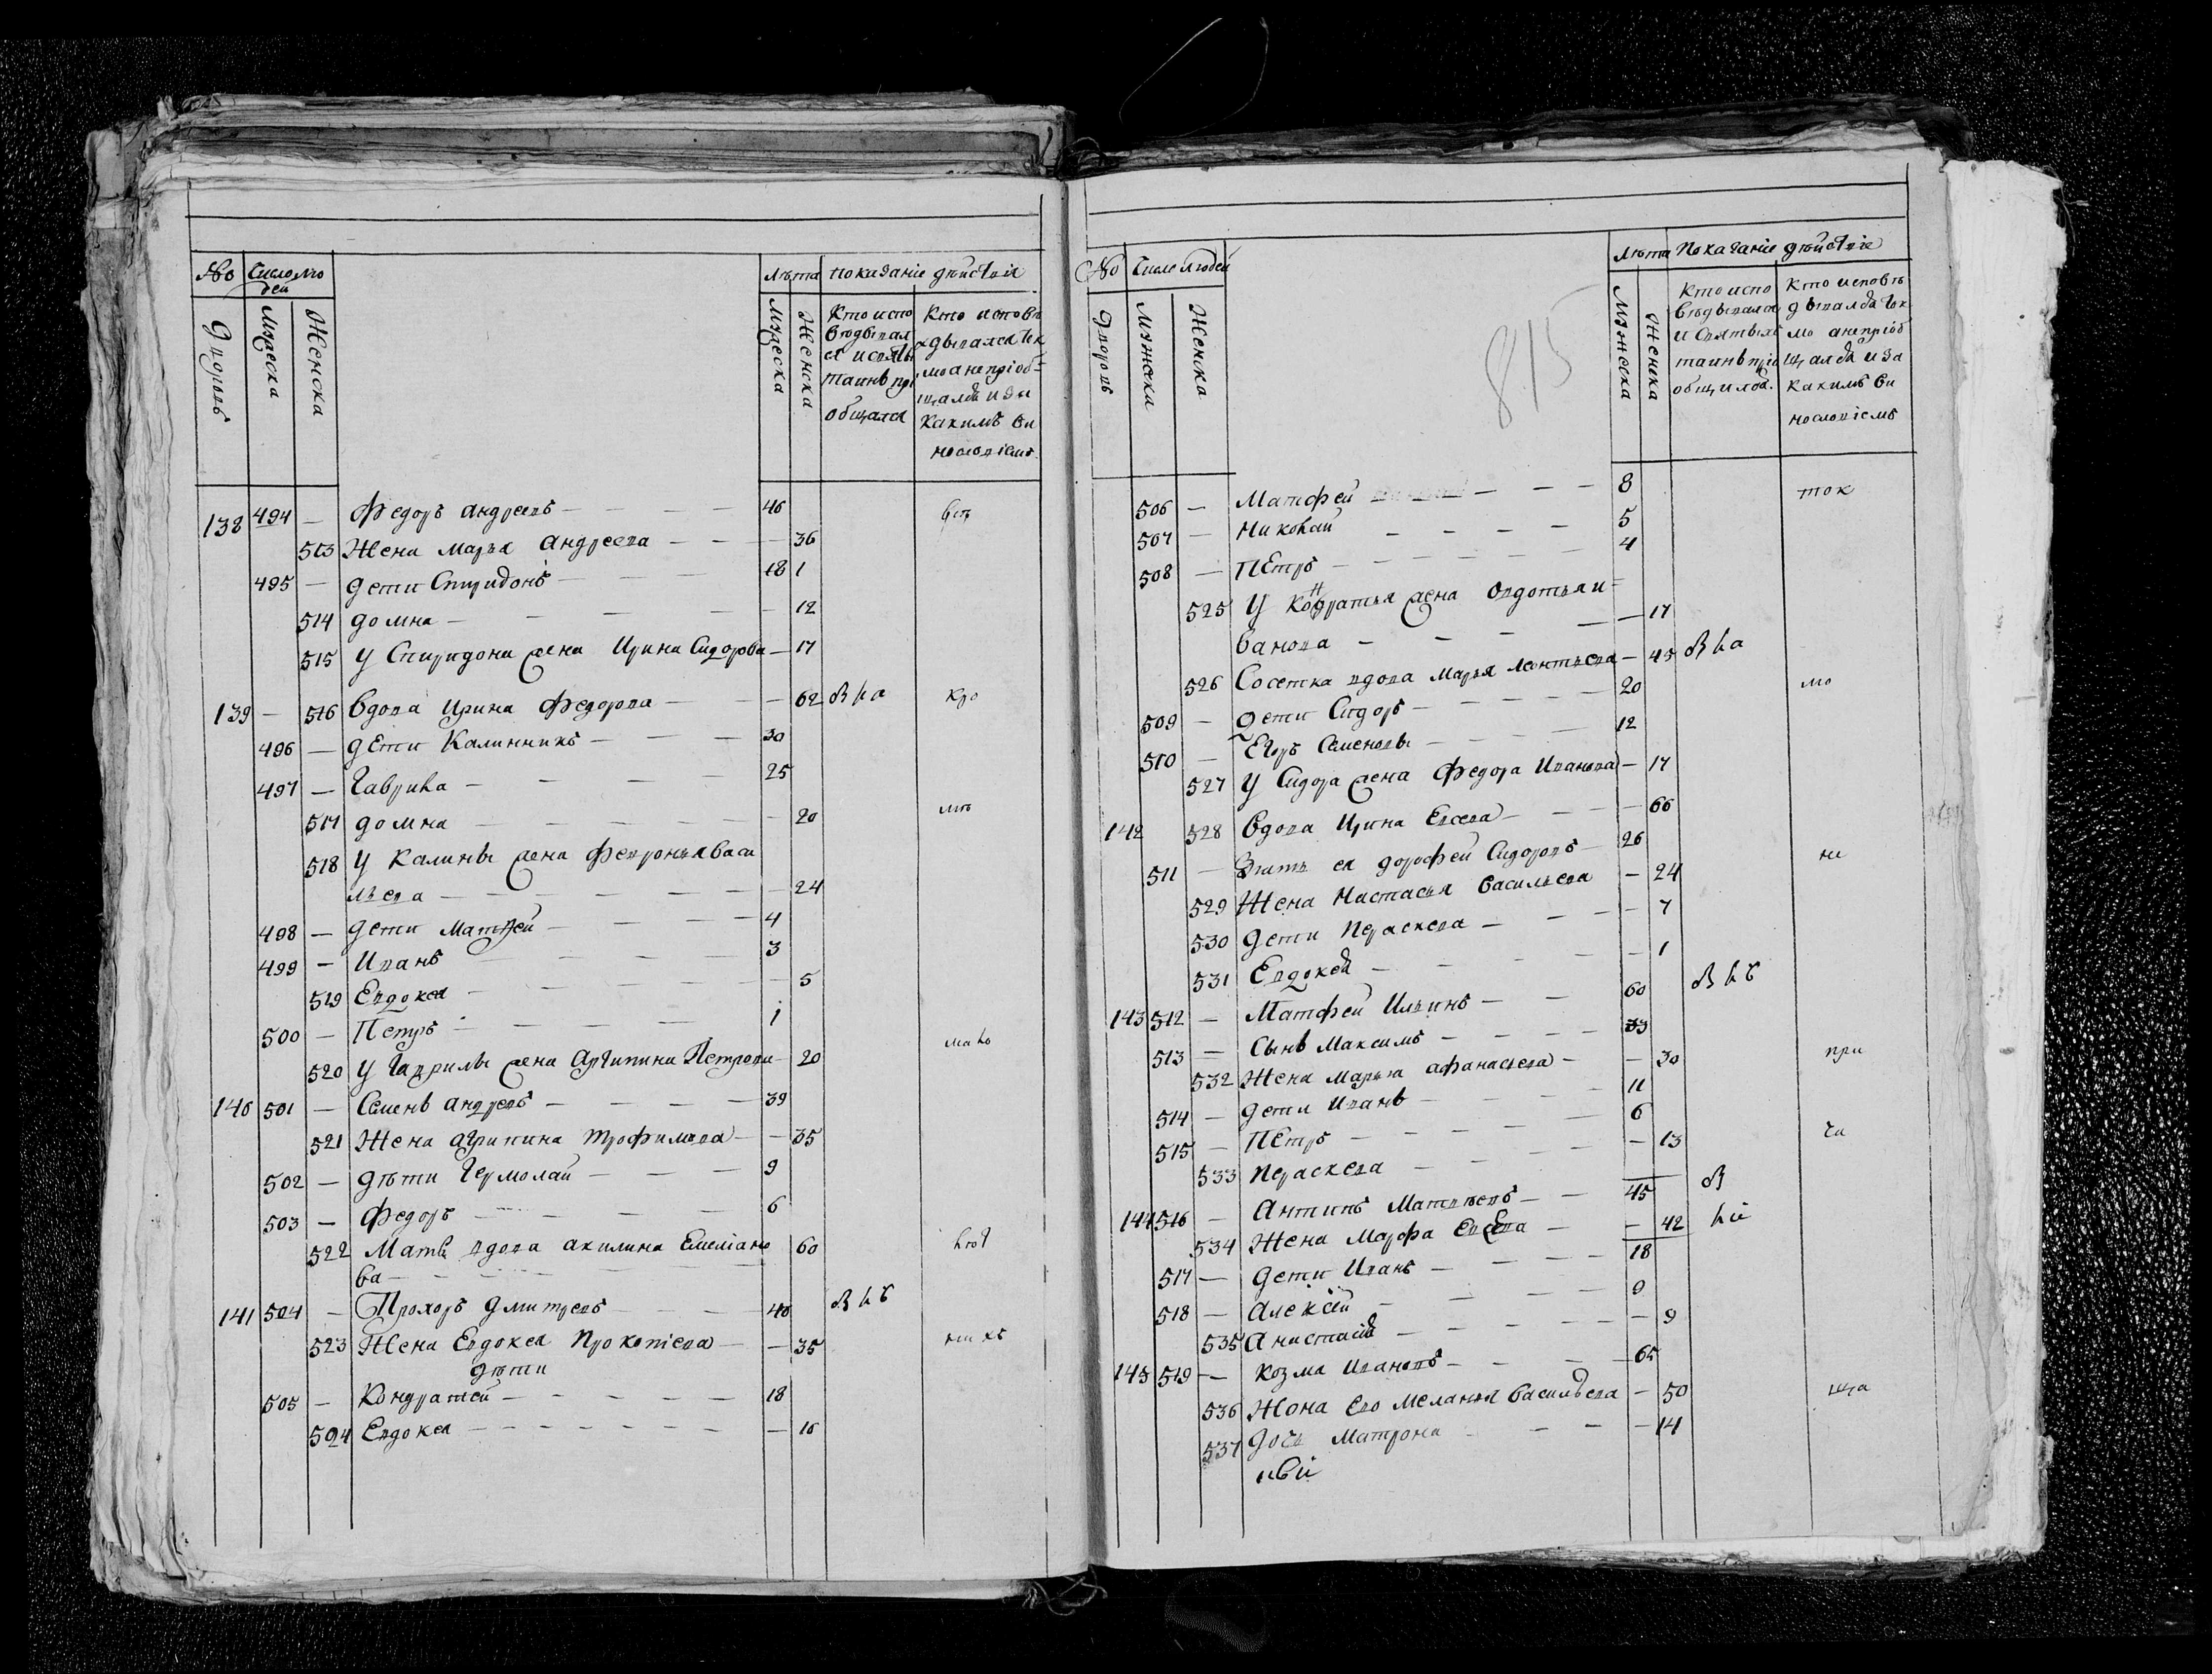 № Число лю показанiе дѣйствiя
дей Лѣта
Дворовъ Мужеска Женска Мужеска Женска
Кто испо Кто исповѣ
вѣдывал дывался ток
ся и святы мо а не прiоб=
таинъ прi щался и за
общался какимъ ви
нословiемъ
138 494 — Федоръ Андреевъ — 46
513 Жена Марья Андреева — 36
495 — дети Спиридонъ — 18
514 домна — 12
515 У Спиридона жена Ирина Сидорова — 17
139 — 516 Вдова Ирина Федорова — 62
496 — дети Калинникъ — 30
497 — Гаврила — 25
517 домна — 20
518 У Калины жена Февронья Васи
льева — 24
498 — дети Матвей — 4
499 — Иванъ — 3
519 Евдокея — 5
500 — Петръ — 1
520 У Гаврилы жена Агрипина Петрова — 20
140 501 — Семенъ Андревъ — 39
521 Жена Агрипина Трофимова — 35
502 — дѣти Гермолай — 9
503 — Федоръ — 6
522 Мать вдова Акилина Емелiано 60
ва —
141 504 — Прохоръ Дмитревъ — 40
523 Жена Евдокея Прокопiева — 35
дѣти
505 — Кондратей — 18
524 Евдокея — 16
№ Число людей Лѣта Показанiе дѣйствiя
Дворовъ Мужска Женска Мужеска Женска
Кто испо Кто исповѣ
вѣдывался дывался ток
и Святыхъ мо а не прiоб
таинъ прiо щался и за
общился какимъ ви
нословiемъ
815
506 — Матфей — 8 ток
507 — Николай — 5
508 — Петръ — 4
525 У Кондратья жена Овдотья И-
ванова — 17
526 Сосетка вдова Марья Леонтьева — 45
509 — Дети Сидоръ — 20 мо
510 — Егоръ Семеновы — 12
527 У Сидора жена Федора Иванова — 17
142 528 Вдова Ирина Евсева — 66
511 — Зять ея Дорофей Сидоровъ — 26 не
529 Жена Настасья Васильева — 24
530 Дети Параскева — 7
531 Евдокея — 1
143 512 — Матфей Ильинъ — 60
513 — Сынъ Максимъ — 33
532 Жена Марья Афанасьева — 30 при
514 — Дети Иванъ — 11
515 — Петръ — 6
533 Параскева — 13 ча
144 516 — Антипъ Матвѣевъ — 45
534 Жена Марфа Евсева — 42
517 — Дети Иванъ — 18
518 — Алексiй — 9
535 Анастасiя — 9
145 519 — Козма Ивановъ — 65
536 Жона Его Меланья Васильева — 50 ща
537 Дочь Матрона — 14